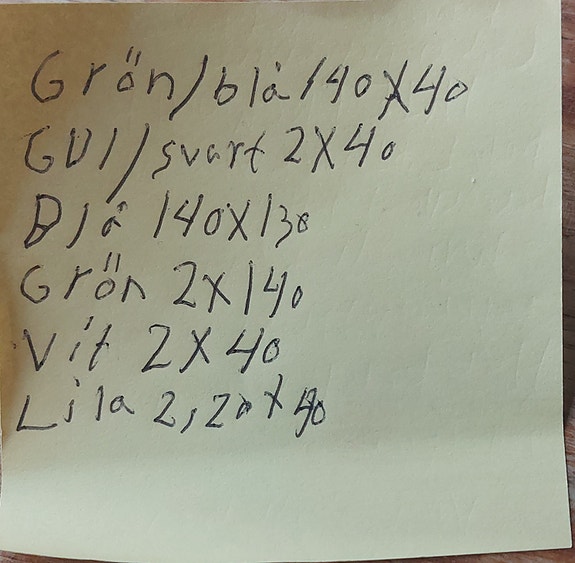 Grön/blå 140X40
GUl/svart 2X40
Blå 140X130
Grön 2X140
Vit 2X40
Lila 2,20X40